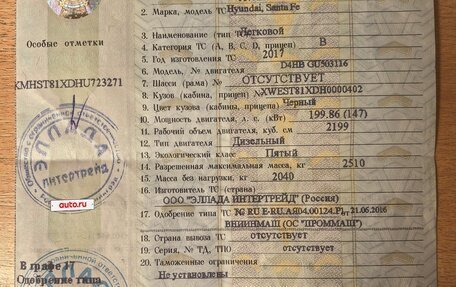 Особые отметки
XMHST81XDHU723271
ЭЛЛАДА
ИНТЕРТРЕЙД
auto.ru
В графе 17
Одобрение типа
2. Марка, модель ТС Hyundai, Santa Fe
3. Наименование (тип ТС) Легковой
4. Категория ТС (A, B, C, D, прицеп) B
5. Год изготовления ТС 2017
6. Модель, № двигателя D4HB GU503116
7. Шасси (рама) № ОТСУТСТВУЕТ
8. Кузов (кабина, прицеп) № XWEST81XDH0000402
9. Цвет кузова (кабины, прицепа) Черный
10. Мощность двигателя, л. с. (кВт) 199.86 (147)
11. Рабочий объем двигателя, куб. см 2199
12. Тип двигателя Дизельный
13. Экологический класс Пятый
14. Разрешенная максимальная масса, кг 2510
15. Масса без нагрузки, кг 2040
16. Изготовитель ТС (страна)
ООО "ЭЛЛАДА ИНТЕРТРЕЙД" (Россия)
17. Одобрение типа ТС № ТС RU Е-RU.АЯ04.00124.Р1 от 21.06.2016
ВНИИНМАШ (ОС "ПРОММАШ")
18. Страна вывоза ТС отсутствует
19. Серия, № ТД, ТПО отсутствует
20. Таможенные ограничения
Не установлены